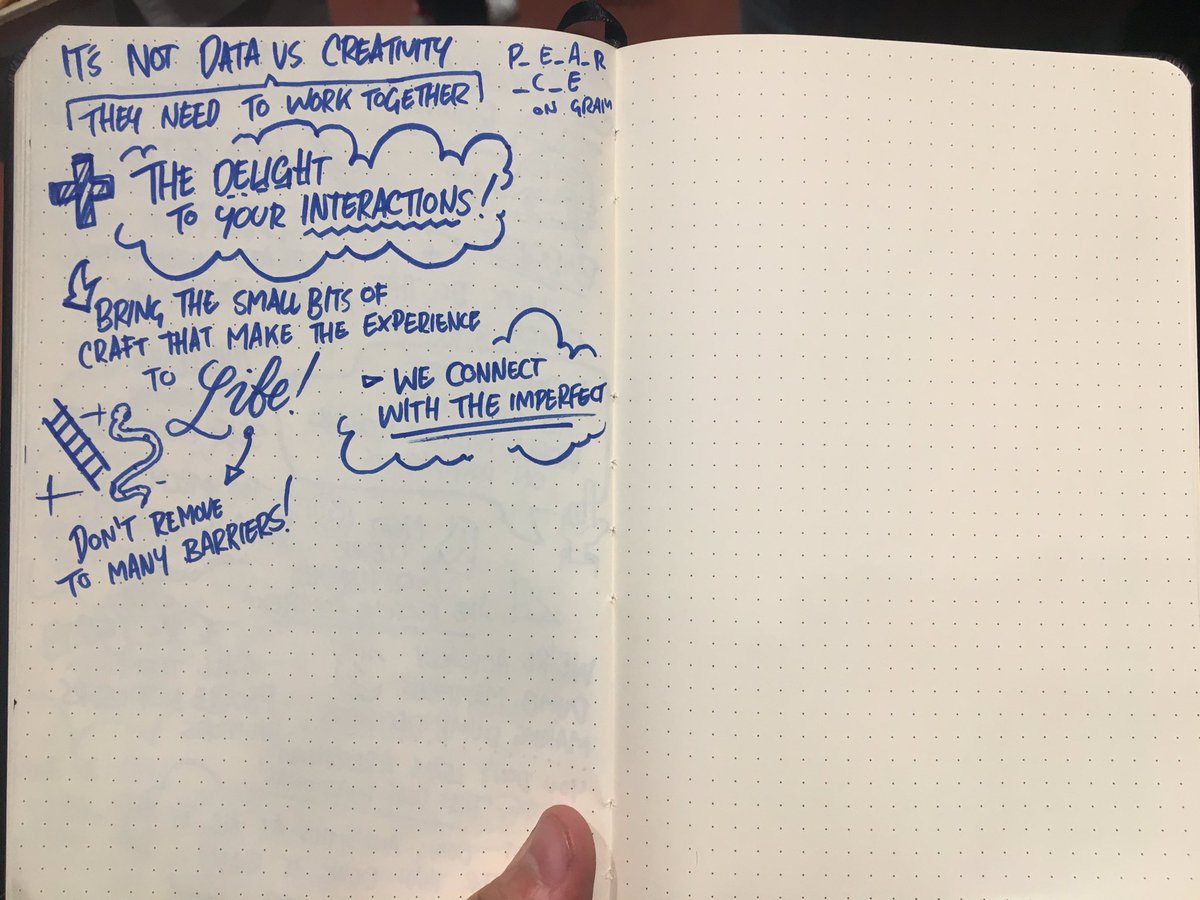 IT'S NOT DATA VS CREATIVITY
THEY NEED TO WORK TOGETHER
P_E_A_R
_C_E
ON GRAM
THE DELIGHT
TO YOUR INTERACTIONS!
BRING THE SMALL BITS OF
CRAFT THAT MAKE THE EXPERIENCE
TO Life!
WE CONNECT
WITH THE IMPERFECT
DON'T REMOVE
TO MANY BARRIERS!